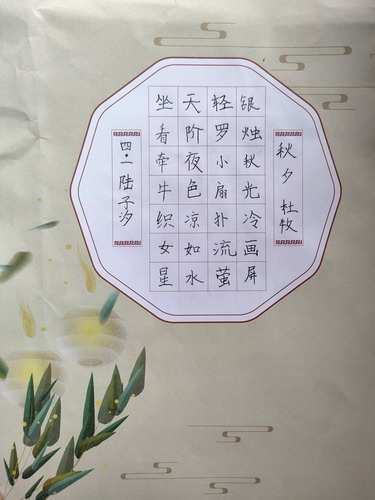 秋夕 杜牧
银烛秋光冷画屏
轻罗小扇扑流萤
天阶夜色凉如水
坐看牵牛织女星
四·二 陆子汐